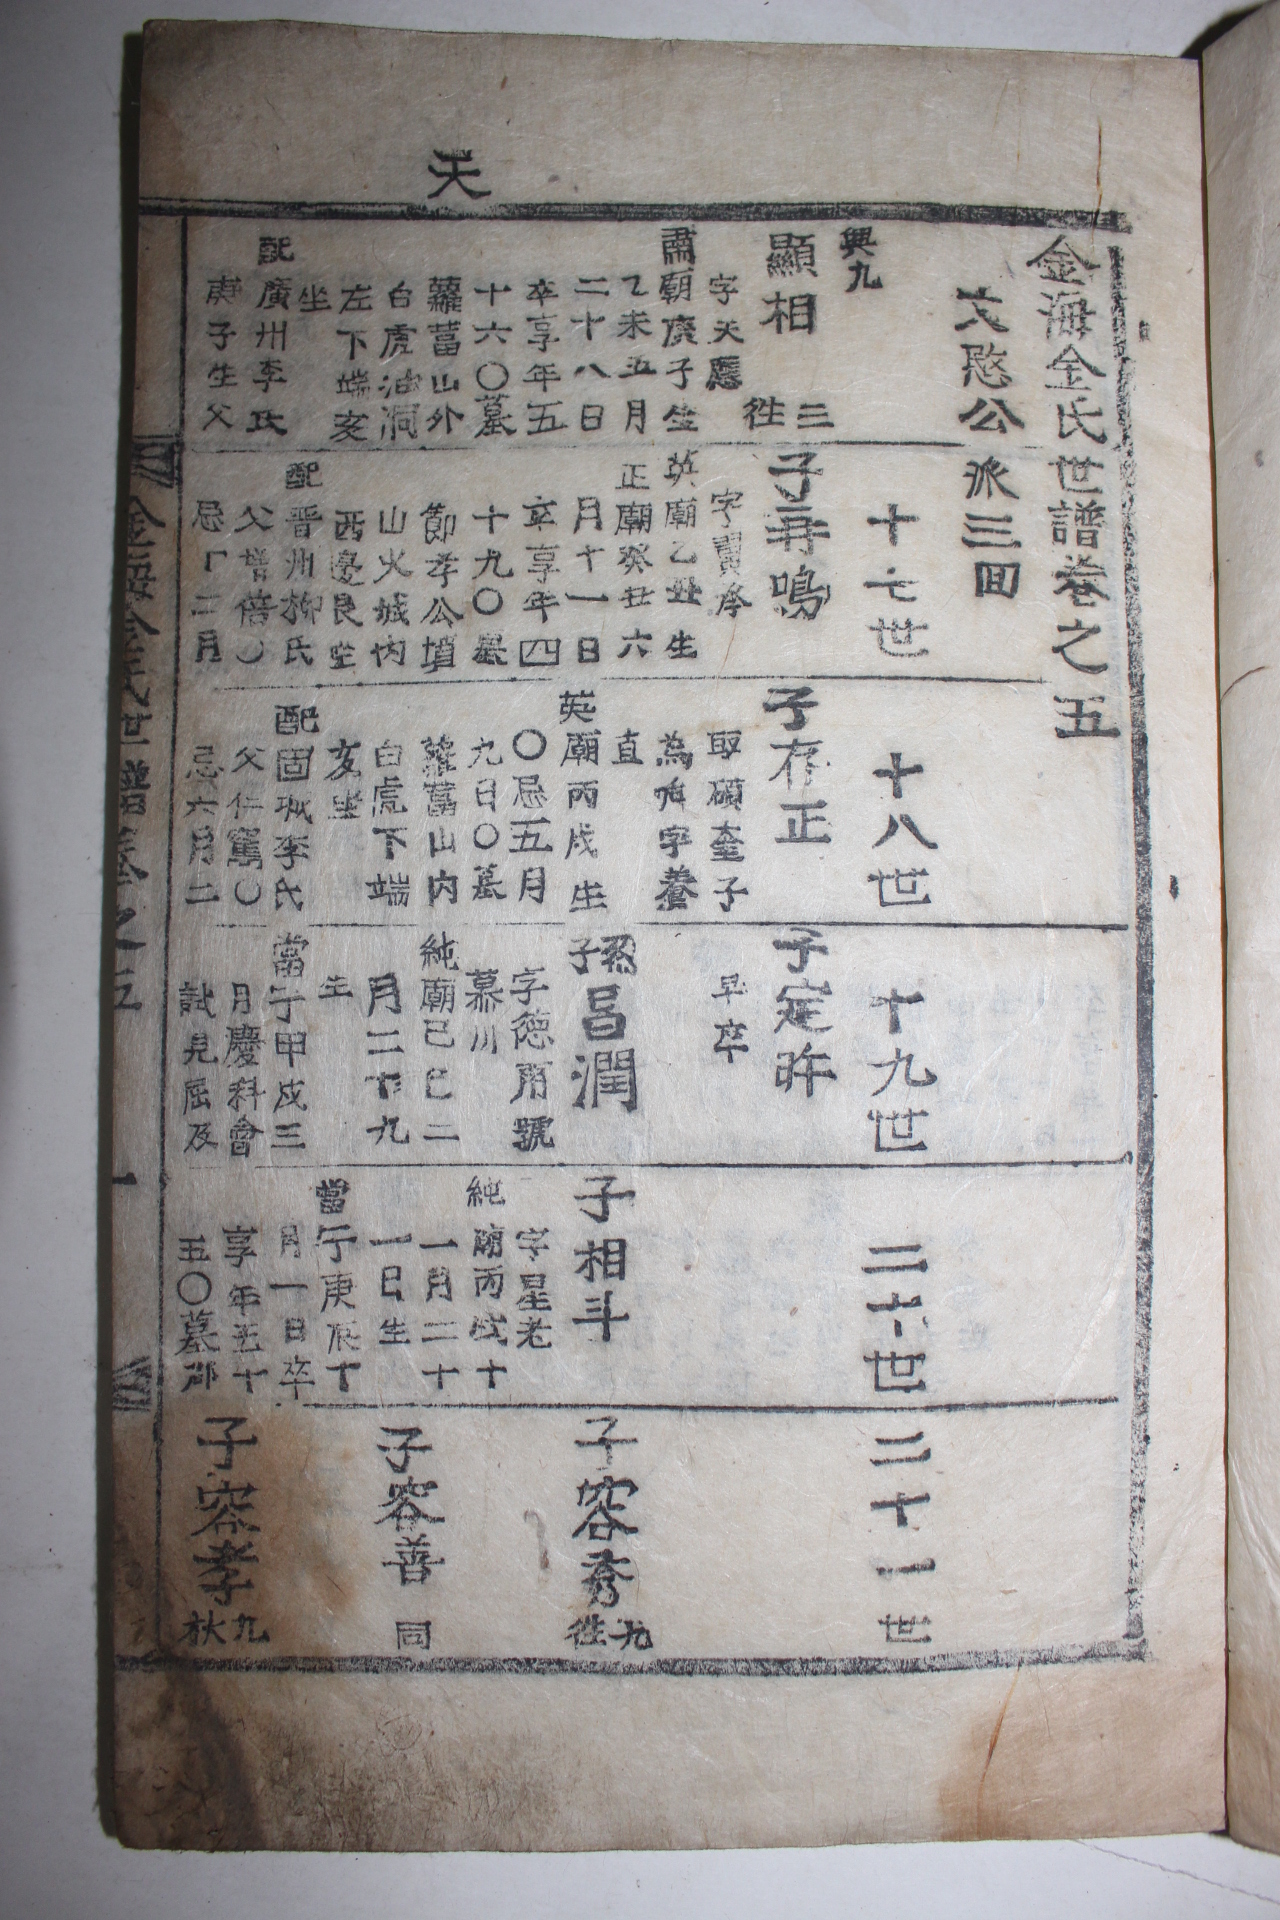 天
金海金氏世譜卷之五
文愍公派三回
十七世
十八世
十九世
二十世
二十一世
興九
顯相
三
徃
字天應
肅朝庚子生
乙未五月
二十八日
卒享年五
十六〇墓
蘿菖山外
白虎油洞
左下端亥
坐
配廣州李氏
庚子生父
子再鳴
英廟乙丑生
正廟癸丑六
月十一日
卒享年四
十九〇墓
節孝公墳
山火城内
西邊艮坐
配晋州柳氏
父增倍〇
忌二月
子存正
取碩奎子
為字養
直
英廟丙戌生
〇忌五月
九日〇墓
蘿菖山内
白虎下端
亥坐
配固城李氏
父仁篤〇
忌六月二
子定昨
早卒
子昌潤
字德用號
慕川
純廟己巳二
月二十九
生
當宁甲戌三
月慶科會
試見屈及
子相斗
字星老
純廟丙戌十
一月二十
一日生
當宁庚辰丁
月一日卒
享年五十
五〇墓
子容秀
九
徃
子容善
同
子容孝
九
秋
金海金氏世譜卷之五
一